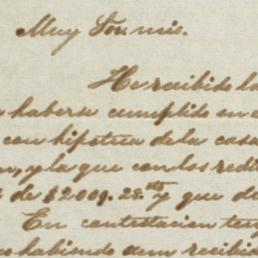 Muy Sor. mio.
He recibido la
haberse cumplido en
con hipoteca de la casa
y la que con los redi
de $2009.28 cts y que d
En contestacion ten
habiendo aun recibi